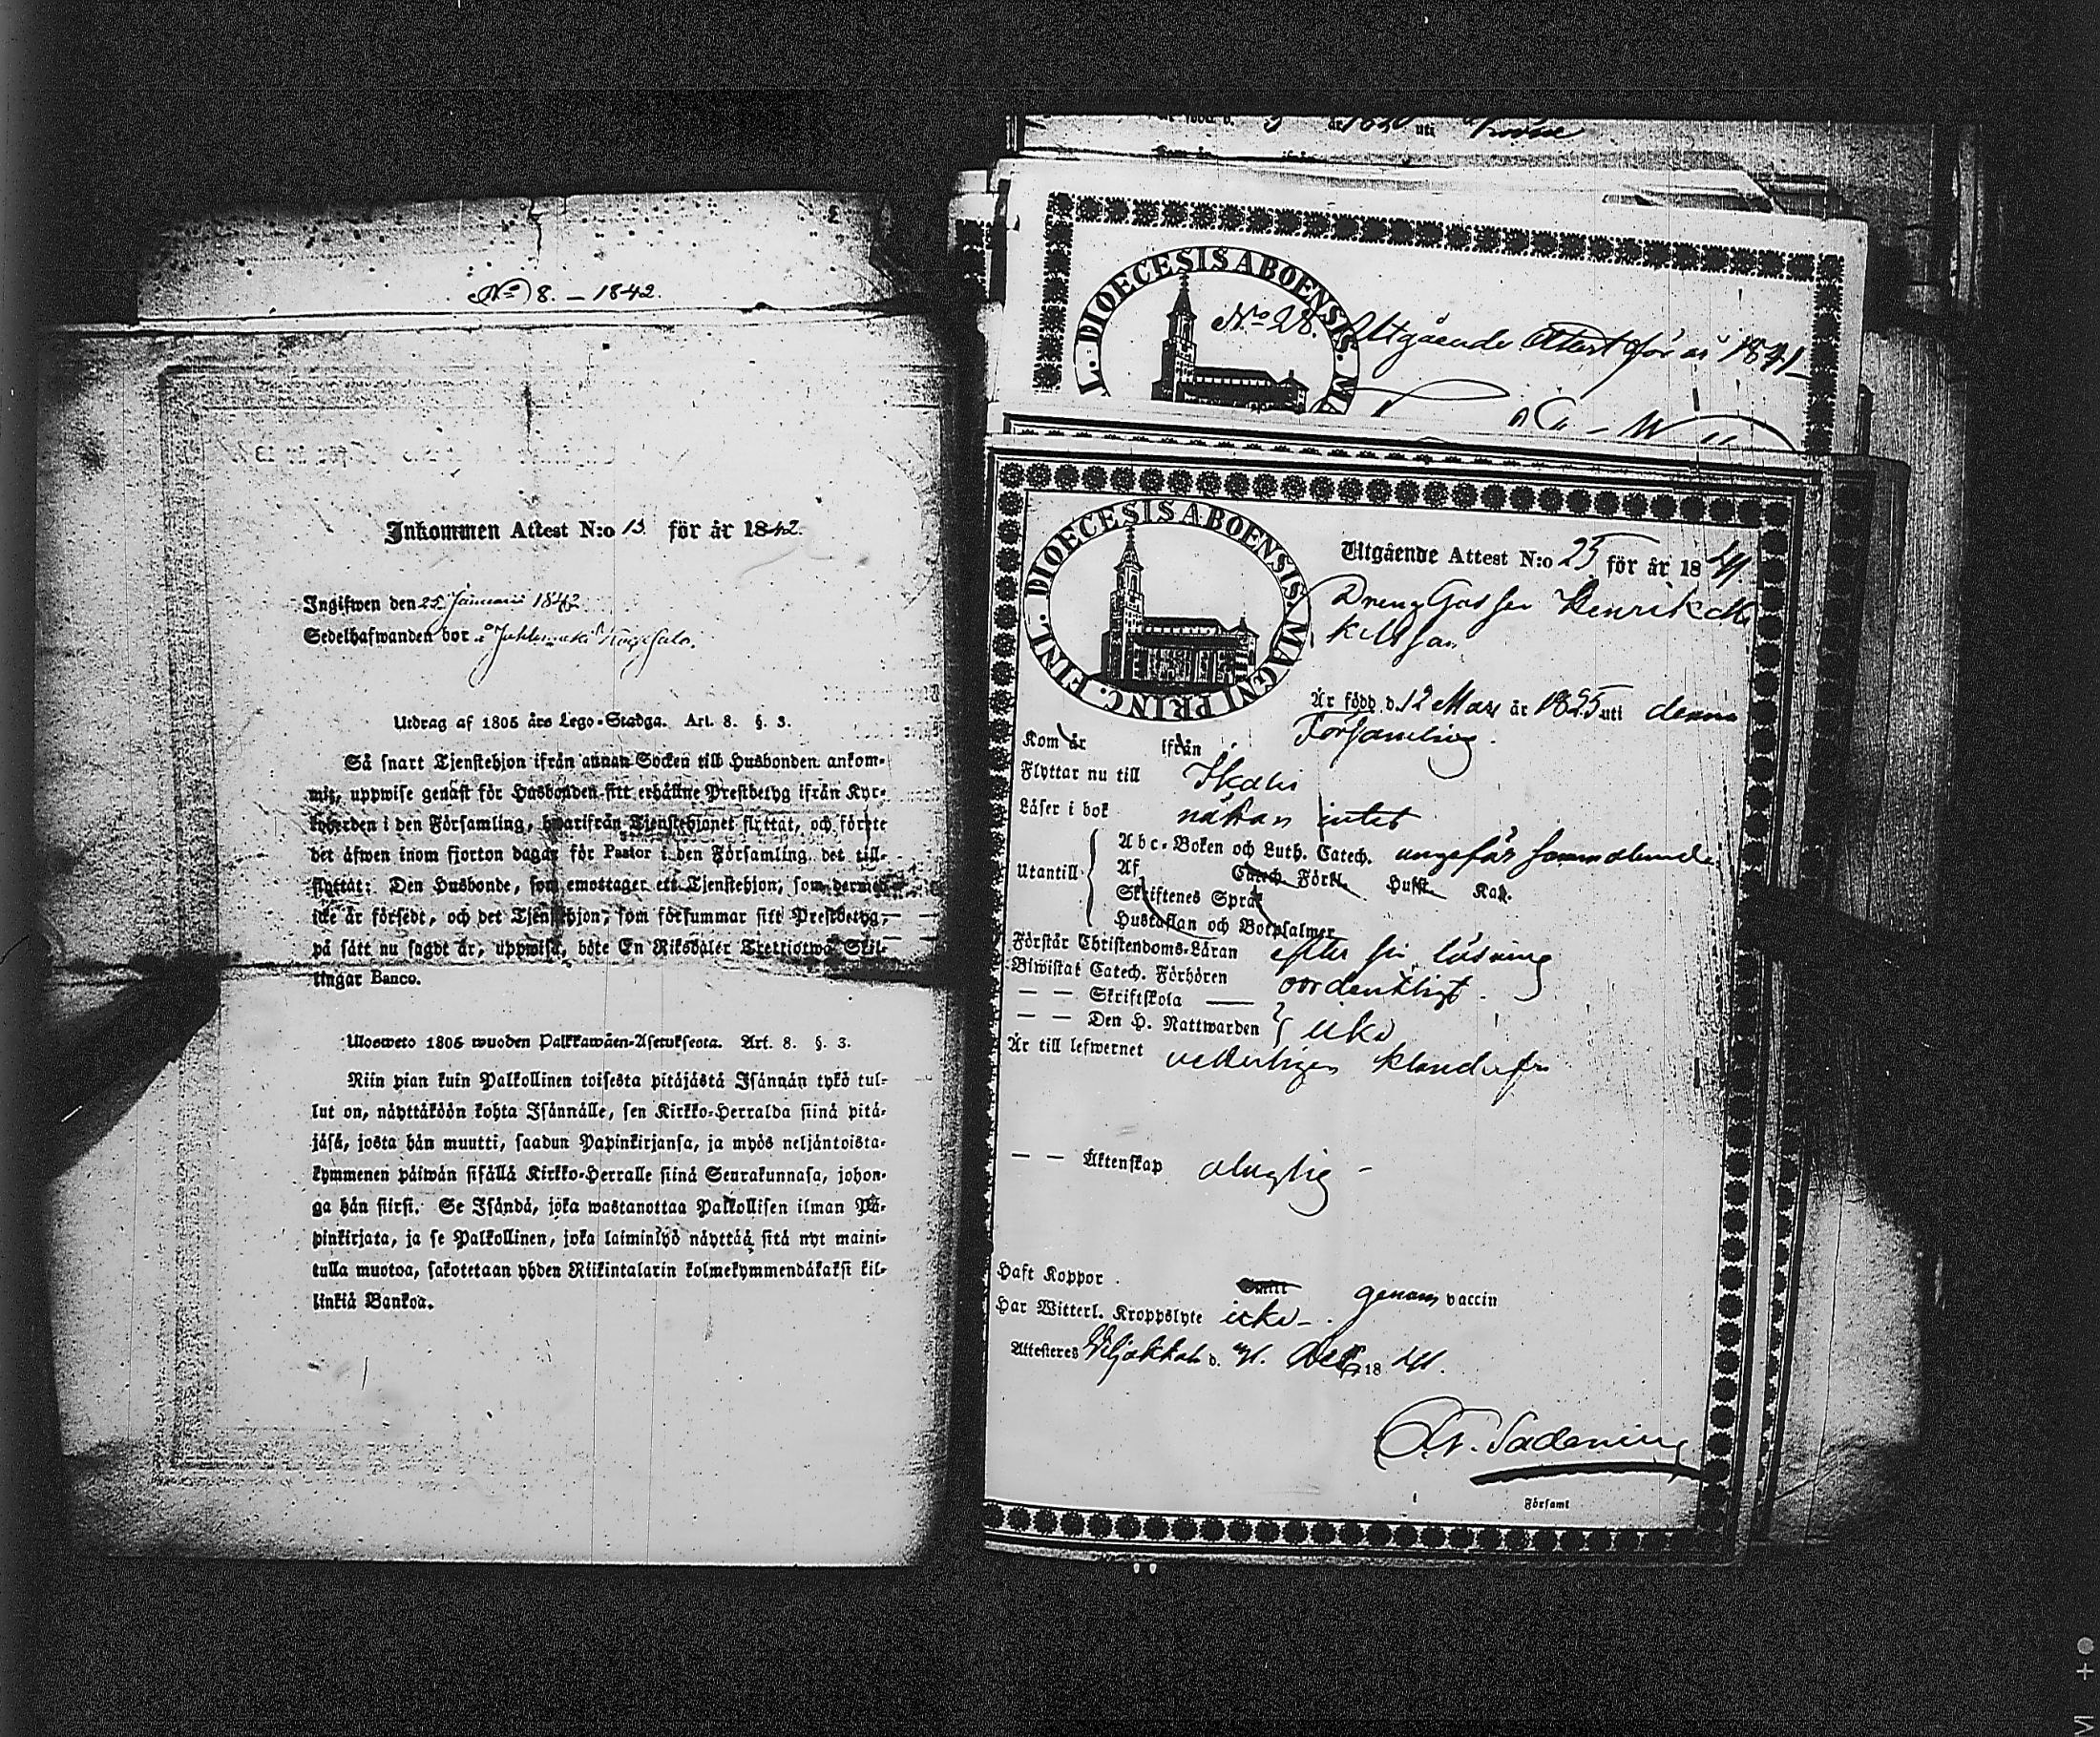 No 8. – 1842.
Inkommen Attest N:o 13 för år 1842.
Ingifwen den 25 Januari 1842
Sedelhafwanden bor å Juhlimäki
Utdrag af 1805 års Lego-Stadga. Art. 8. §. 3.
Så snart Tjenstehjon ifrån annan Socken till Husbonden ankom-
mit, uppwise genast för Husbonden sitt erhållne Prestbetyg ifrån Kyr-
koherden i den Församling, hwarifrån Tjenstehjonet flyttat, och förete
det äfwen inom fjorton dagar för Pastor i den Församling det till-
flyttat: Den Husbonde, som emottager ett Tjenstehjon, som dermed
icke är försedt, och det Tjenstehjon, som försummar sitt Prestbetyg,
på sätt nu sagdt är, uppwisa, böte En Riksdaler Trettiotwå Skil-
lingar Banco.
Ulosweto 1805 wuoden Palkkawäen-Asetuksesta. Art. 8. §. 3.
Niin pian kuin Palkollinen toisesta pitäjästä Isännän tykö tul-
lut on, näyttäköön kohta Isännälle, sen Kirkko-Herralda siinä pitä-
jäsä, josta hän muutti, saadun Papinkirjansa, ja myös neljäntoista-
kymmenen päiwän sisällä Kirkko-Herralle siinä Seurakunnasa, johon-
ga hän siirsi. Se Isändä, joka wastanottaa Palkollisen ilman Pa-
pinkirjata, ja se Palkollinen, joka laiminlyö näyttää sitä nyt maini-
tulla muotoa, sakotetaan yhden Riikintalarin kolmekymmendäkaksi kil-
linkiä Bankoa.
år 1820 uti
Kom år ifrån
L. DIOECESIS ABOENSIS. MA
No 28. Utgående Attest för år 1841
FINL. DIOECESIS ABOENSIS. MAGNI PRINC.
Utgående Attest N:o 25 för år 1841.
Dreng Gossen Henrik
Är född d. 12 Mars år 1825 uti denna
Församling.
Kom år ifrån
Flyttar nu till Ikalis
Läser i bok nästan intet
Utantill Abc-Boken och Luth. Catech. ungefär sammalunda
Af Catech. Förkl. Hufst. Kap.
Skriftenes Språk
Hustaflan och Botpsalmer
Förstår Christendoms-Läran efter sin läsning
Biwistat Catech. Förhören oordentligt.
— — Skriftskola —
— — Den H. Nattwarden } icke
Är till lefwernet vetterligen klanderfri
— — Äktenskap oduglig –
Haft Koppor. Smitt genom vaccin
Har Witterl. Kroppslyte icke –.
Attesteres Viljakkala d. Dec 1841.
Församl
VI